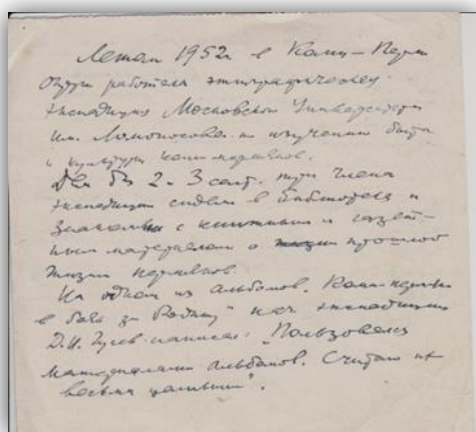 Летом 1952 г в Коми-Перм
округе работала этнографическая
экспедиция Московского Университета
им. Ломоносова по изучению быта
и культуры коми-пермяков.
Два дня 2 и 3 сент. три члена
экспедиции сидели в библиотеке и
знаком с книжными и газет-
ными материалами о жизни прошлой
жизни пермяков.
На одном из альбомов. Коми-пермяки
в боях за Родину" нач экспедиции
Д.И. Гусев написал: „Пользовался
материалами альбомов. Считаю их
весьма ценными".